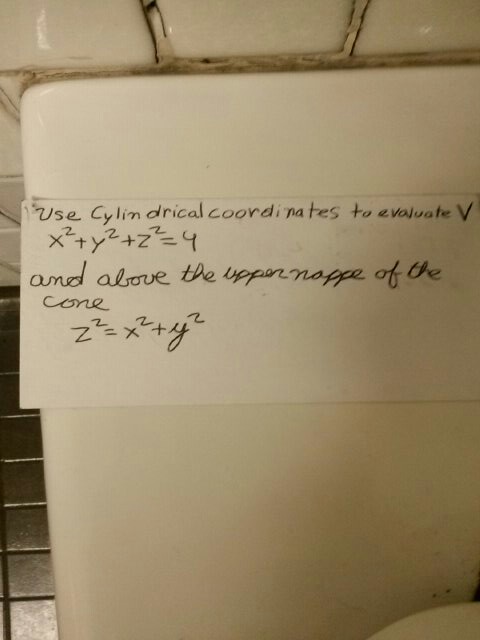 Use Cylindrical coordinates to evaluate V
x²+y²+z²=4
and above the upper nappe of the
cone
z²=x²+y²